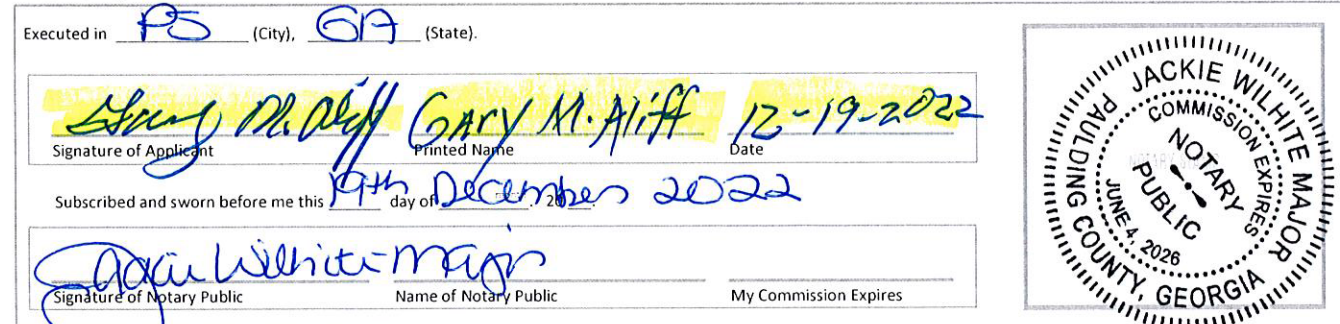 Executed in PS (City), GA (State).
Gary M. Aliff GARY M. Aliff 12-19-2022
Signature of Applicant Printed Name Date
Subscribed and sworn before me this 19th day of December 2022, 20__.
Jackie Wilhite-Major
Signature of Notary Public Name of Notary Public My Commission Expires
JACKIE WILHITE MAJOR
COMMISSION EXPIRES
NOTARY
PUBLIC
JUNE 4, 2026
PAULDING COUNTY, GEORGIA